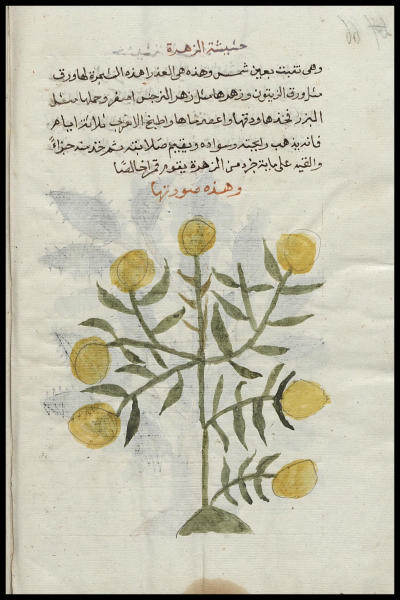 حشيشة الزهرة
وهى تنبت بعين شمس وهذه هى العذرا هذه الشجرة لها ورق
مثل ورق الزيتون وزهرها مثل زهر النرجس اصفر وحملها مثل
البزر تخذها ودقها واعصر ماها واطبخ الاسرب ثلاثة ايام
فانه يذهب وسواده ويقيم صلابته ثم خذ منه جزأ
والقيه على ماية جزء من الزهرة يقوم قمرا خالصا
وهذه صورتها